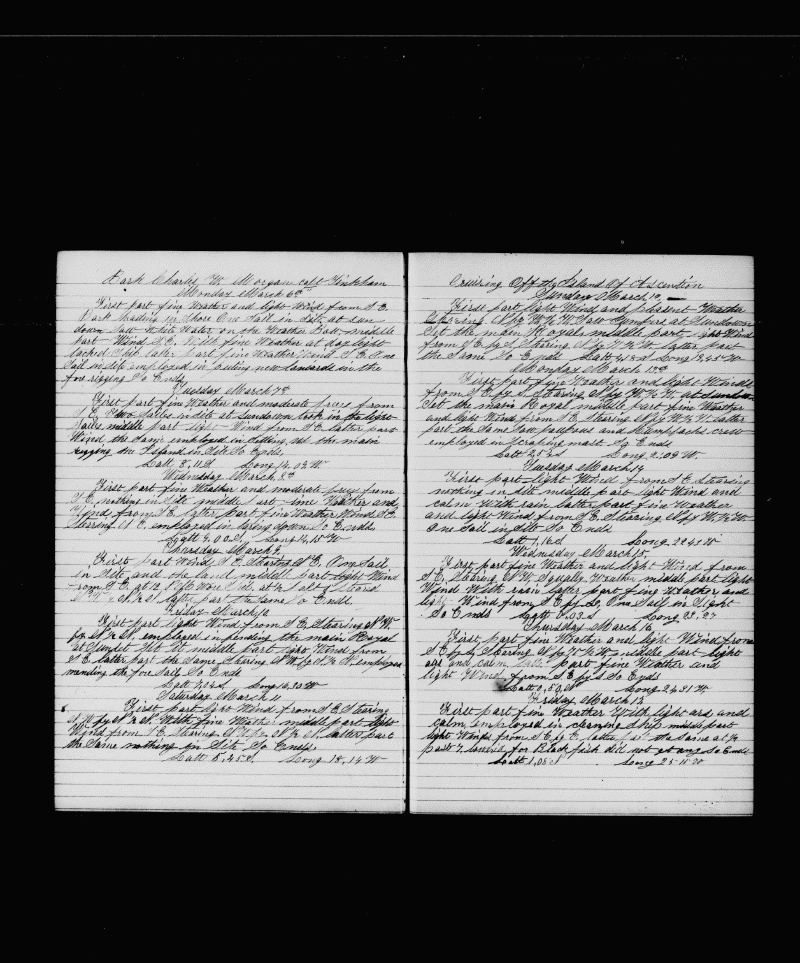 Bark Charles W. Morgan capt Tinkham
Monday March 6th
First part fine Weather and light Wind from S. E.
Bark heading in Shore One Sail in Site at sun
down Saw White Water on the Weather Bow middle
part Wind S. E. With fine Weather at day light
tacked Ship latter part fine Weather Wind S. E. One
Sail in site employed in puting new lanyards in the
fore rigging So Ends
Tuesday March 7th
First part fine Weather and moderate breez from
S E two Sailes in site at Sundown took in the light
Sailes middle part light Wind from S. E. latter part
Wind the Same employed in the main
rigging the Island in Site So Ends
Latt 8,11 S Long 14,03 W
Wednesday March 8th
First part fine Weather and moderate breez from
S E, nothing in Site middle part fine Weather and
Wind from S. E. latter part fine Weather Wind S. E.
Stearing N E. employed in So Ends
Latt 9,00 S, Long 14,15 W
Thursday March 9
First part Wind S E Stearing N E. One Sail
in Site and the land middle part light Wind
from S E, at 12
latter part the same So Ends
Friday March 10
First part light Wind from S. E, Stearing N W.
by N ½ N. employed in bending the main Royal
at Sunset middle part light Wind from
S E latter part the same Stearing N W by N ½ N. employed
mending the fore Sail So Ends
Latt 7,04 S Long 16,30 W
Saturday March 11
First part light Wind from S. E, Stearing
N W by N ½ N. With fine Weather middle part light
Wind from S E Stearing N W by N ½ N. latter part
the Same nothing in Site So Ends
Latt 5,45 S. Long 18,14 W
Cruising Off the Island Of Ascention
Sunday March 12
First part light Wind and pleasent Weather
Stearing N W by W ½ W. Saw at Sundown
Set the main Royal middle part light Wind
from S E by S, Stearing N by W ½ W latter part
the Same So Ends Latt 4,18 S Long 19,45 W
Monday March 13th
First part fine Weather and light Winds
from S E by S Stearing N by W ½ W. at Sundown
Set the main Royal middle part fine Weather
and light Winds from S E Stearing N by W ½ W. latter
part the Same Saw and crew
employed in Scraping mast So Ends
Latt 2,52 S Long 21,09 W.
Tuesday March 14
First part light Wind from S E Stearing
nothing in site middle part light Wind and
calm With rain latter part fine Weather
and light Wind from S. E. Stearing N by W ½ W
One Sail in Site So Ends
Latt 1,16 S Long 22 41 W
Wednesday March 15,
First part fine Weather and light Wind from
S E, Stearing N W, Squally Weather middle part light
Wind With rain latter part fine Weather and
light Wind from S. E. by S, One Sail in Sight
So Ends Latt 0,03 S Long 23,27
Thursday March 16
First part fine Weather and light Wind from
S E by S Stearing N by W ½ W middle part light
airs and calm latter part fine Weather and
light Wind from S E by S So Ends
Latt 0,50 N Long 24,31 W
Friday March 17
First part fine Weather With light ars and
calm, employed in cleaning Ship middle part
light Winds from S E by E latter part the same at ½
past 7, lowered for Black fish did not get any So Ends
Latt 1,08 Long 25-11 W